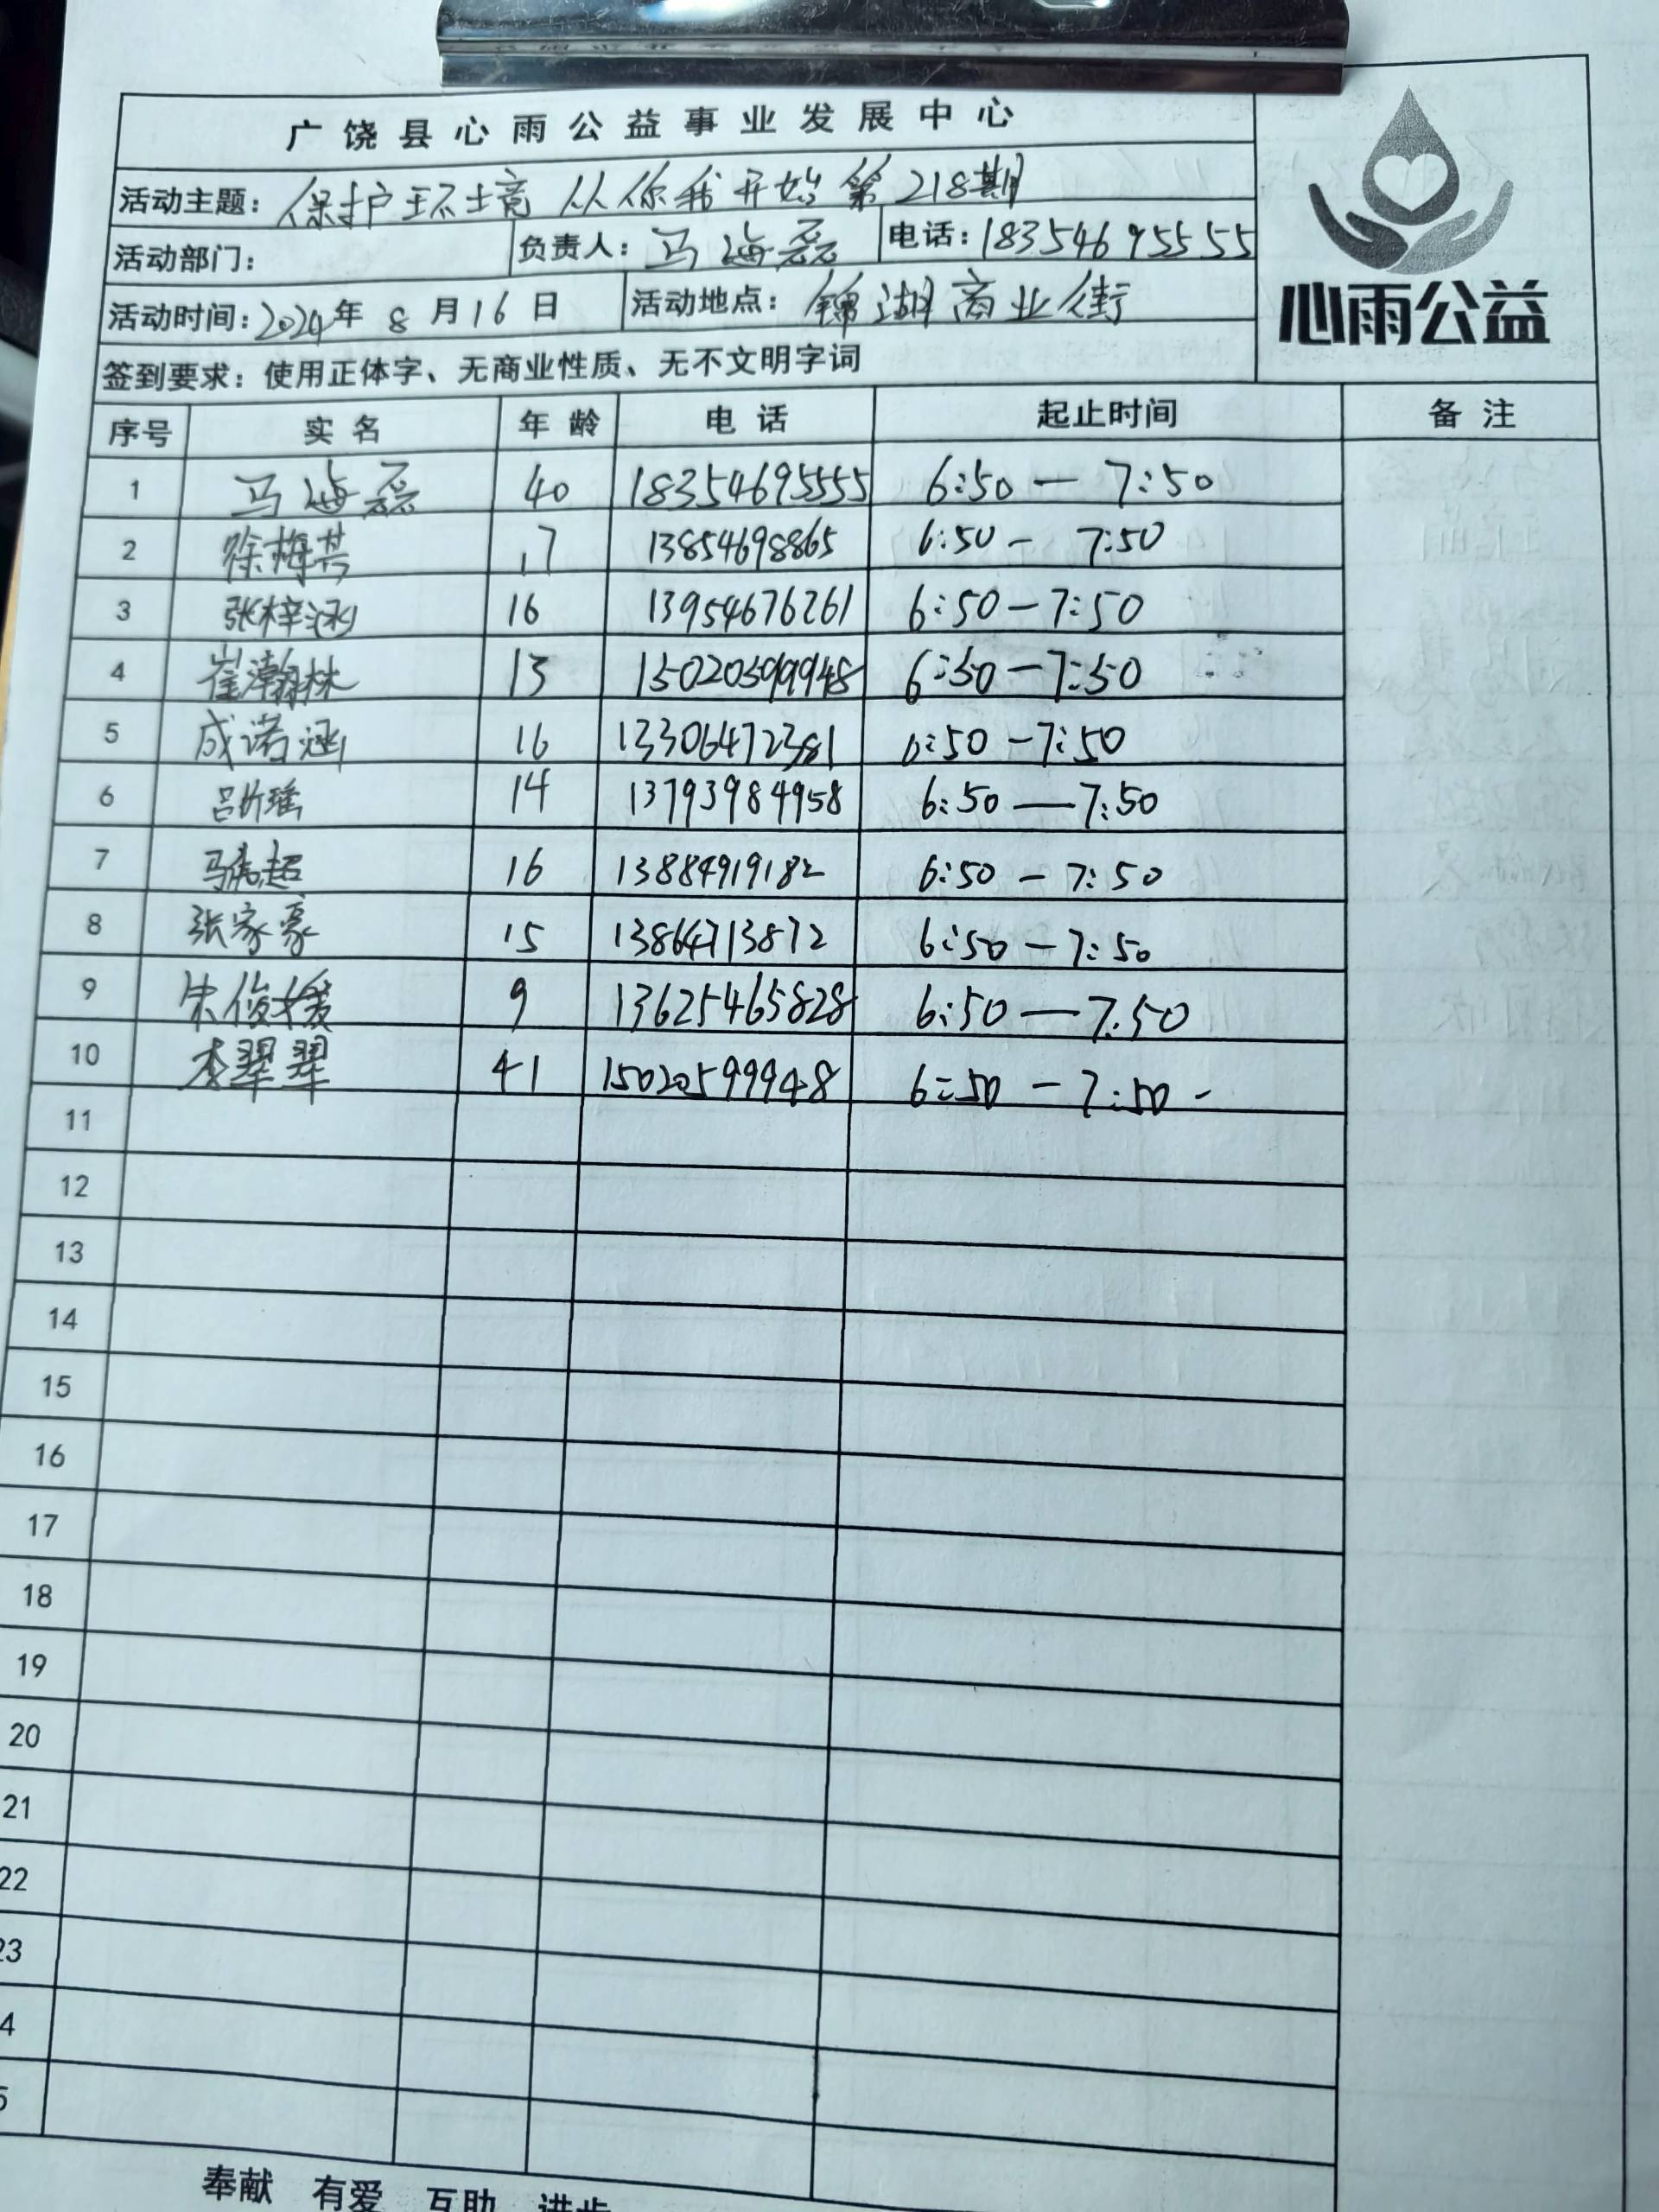 广饶县心雨公益事业发展中心
活动主题：保护环境 从你我开始 第218期
活动部门： 负责人：马海磊 电话：18354695555
活动时间：2024年 8 月 16 日 活动地点：锦湖商业街
心雨公益
签到要求：使用正体字、无商业性质、无不文明字词
序号 实名 年龄 电话 起止时间 备注
1 马海磊 40 18354695555 6:50 — 7:50
2 徐梅 17 13854698865 6:50 - 7:50
3 张梓涵 16 13954676261 6:50 — 7:50
4 崔瀚林 13 15020599948 6:50 — 7:50
5 成诺涵 16 13306472381 6:50 - 7:50
6 吕昕瑶 14 13793984958 6:50 — 7:50
7 马彪超 16 13884919182 6:50 - 7:50
8 张家豪 15 13864713872 6:50 - 7:50
9 宋俊媛 9 13625465828 6:50 — 7.50
10 李翠翠 41 15020599948 6:50 - 7:50 -
11
12
13
14
15
16
17
18
19
20
21
22
23
4
5
奉献 有爱 互助 进步